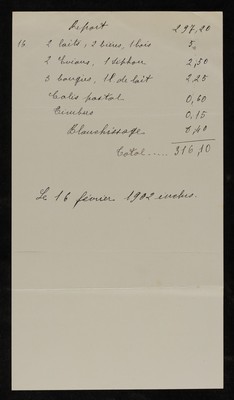 Report 297,20
16 2 laits, 2 bières, 1 bois 5,
2 Evians, 1 siphon 2,50
3 bougies, 1 de lait 2,25
Colis postal 0,60
Timbres 0,15
Blanchissage 8,40
Total..... 316,10
Le 16 février 1902 inclus.